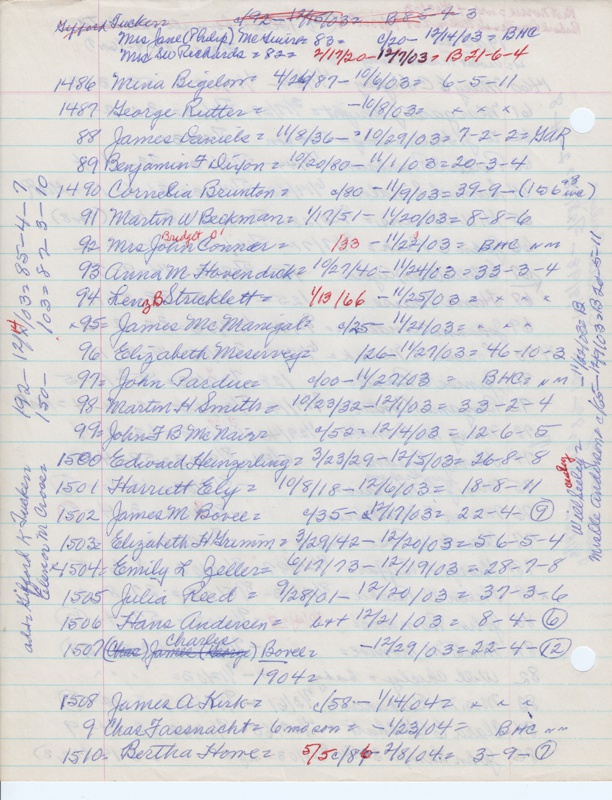 Gifford Tucker c/92 - 12/15/03 = 85-4-3
Mrs Jane (Philip) McGuire = 83 = c/20 - 12/14/03 = BHC
Mrs Geo Richards = 82 = 2/17/20 - 12/7/03 = B 21-6-4
1486 Mina Bigelow = 4/26/87 - 10/6/03 = 6-5-11
1487 George Rutter = - 10/8/03 = x x x
88 James Daniels = 11/8/36 - 10/29/03 = 7-2-2 = GAR
89 Benjamin F Dixon = 10/20/80 - 11/1/03 = 20-3-4
1490 Cornelia Brunton = c/80 - 11/9/03 = 39-9 - (1 & 6
91 Martin W Beckman = 1/17/51 - 11/20/03 = 8-8-6
Bridget O'
92 Mrs John Connor = 1/33 - 11/22/03 = BHC nm
93 Anna M Hovendick = 10/27/40 - 11/24/03 = 33-3-4
94 Lenz B Stricklett = 1/13/66 - 11/25/03 = x x x
x95 = James McManigal = c/25 - 11/21/03 = x x x
96 Elizabeth Meservey = 1/26 - 11/27/03 = 46-10-3
97 = John Pardue = c/00 - 11/27/03 = BHC = nm
98 Martin H Smith = 10/23/32 - 12/1/03 = 33-2-4
99 = John F B McNair = c/52 = 12/4/03 = 12-6-5
1500 Edward Heinzerling = 3/23/29 - 12/5/03 = 26-8-8
1501 Harriett Ely = 10/8/18 - 12/6/03 = 18-8-11
1502 James M Bovee = c/35 - 12/17/03 = 22-4-9
1503 = Elizabeth H Grimm = 3/29/42 - 12/20/03 = 56-5-4
x1504 = Emily L Zeller = 6/17/73 - 12/19/03 = 28-7-8
1505 Julia Reed = 9/28/01 - 12/20/03 = 37-3-6
1506 Hans Andersen = 12/21/03 = 8-4-6
Charlie
1507 (Chas) James (George) Bovee = - 12/29/03 = 22-4-12
1904 =
1508 James A Kirk = c/58 - 1/14/04 = x x x
9 Chas Fassnacht = 6 mo son = - 1/23/04 = BHC nm
1510 = Bertha Howe = 5/5 c/86 - 2/8/04 = 3-9-7
add = Gifford K Tucker 192 - 12/14/03 = 85-4-7
Elenor M Crosser 150 - 103 = 82-3-10